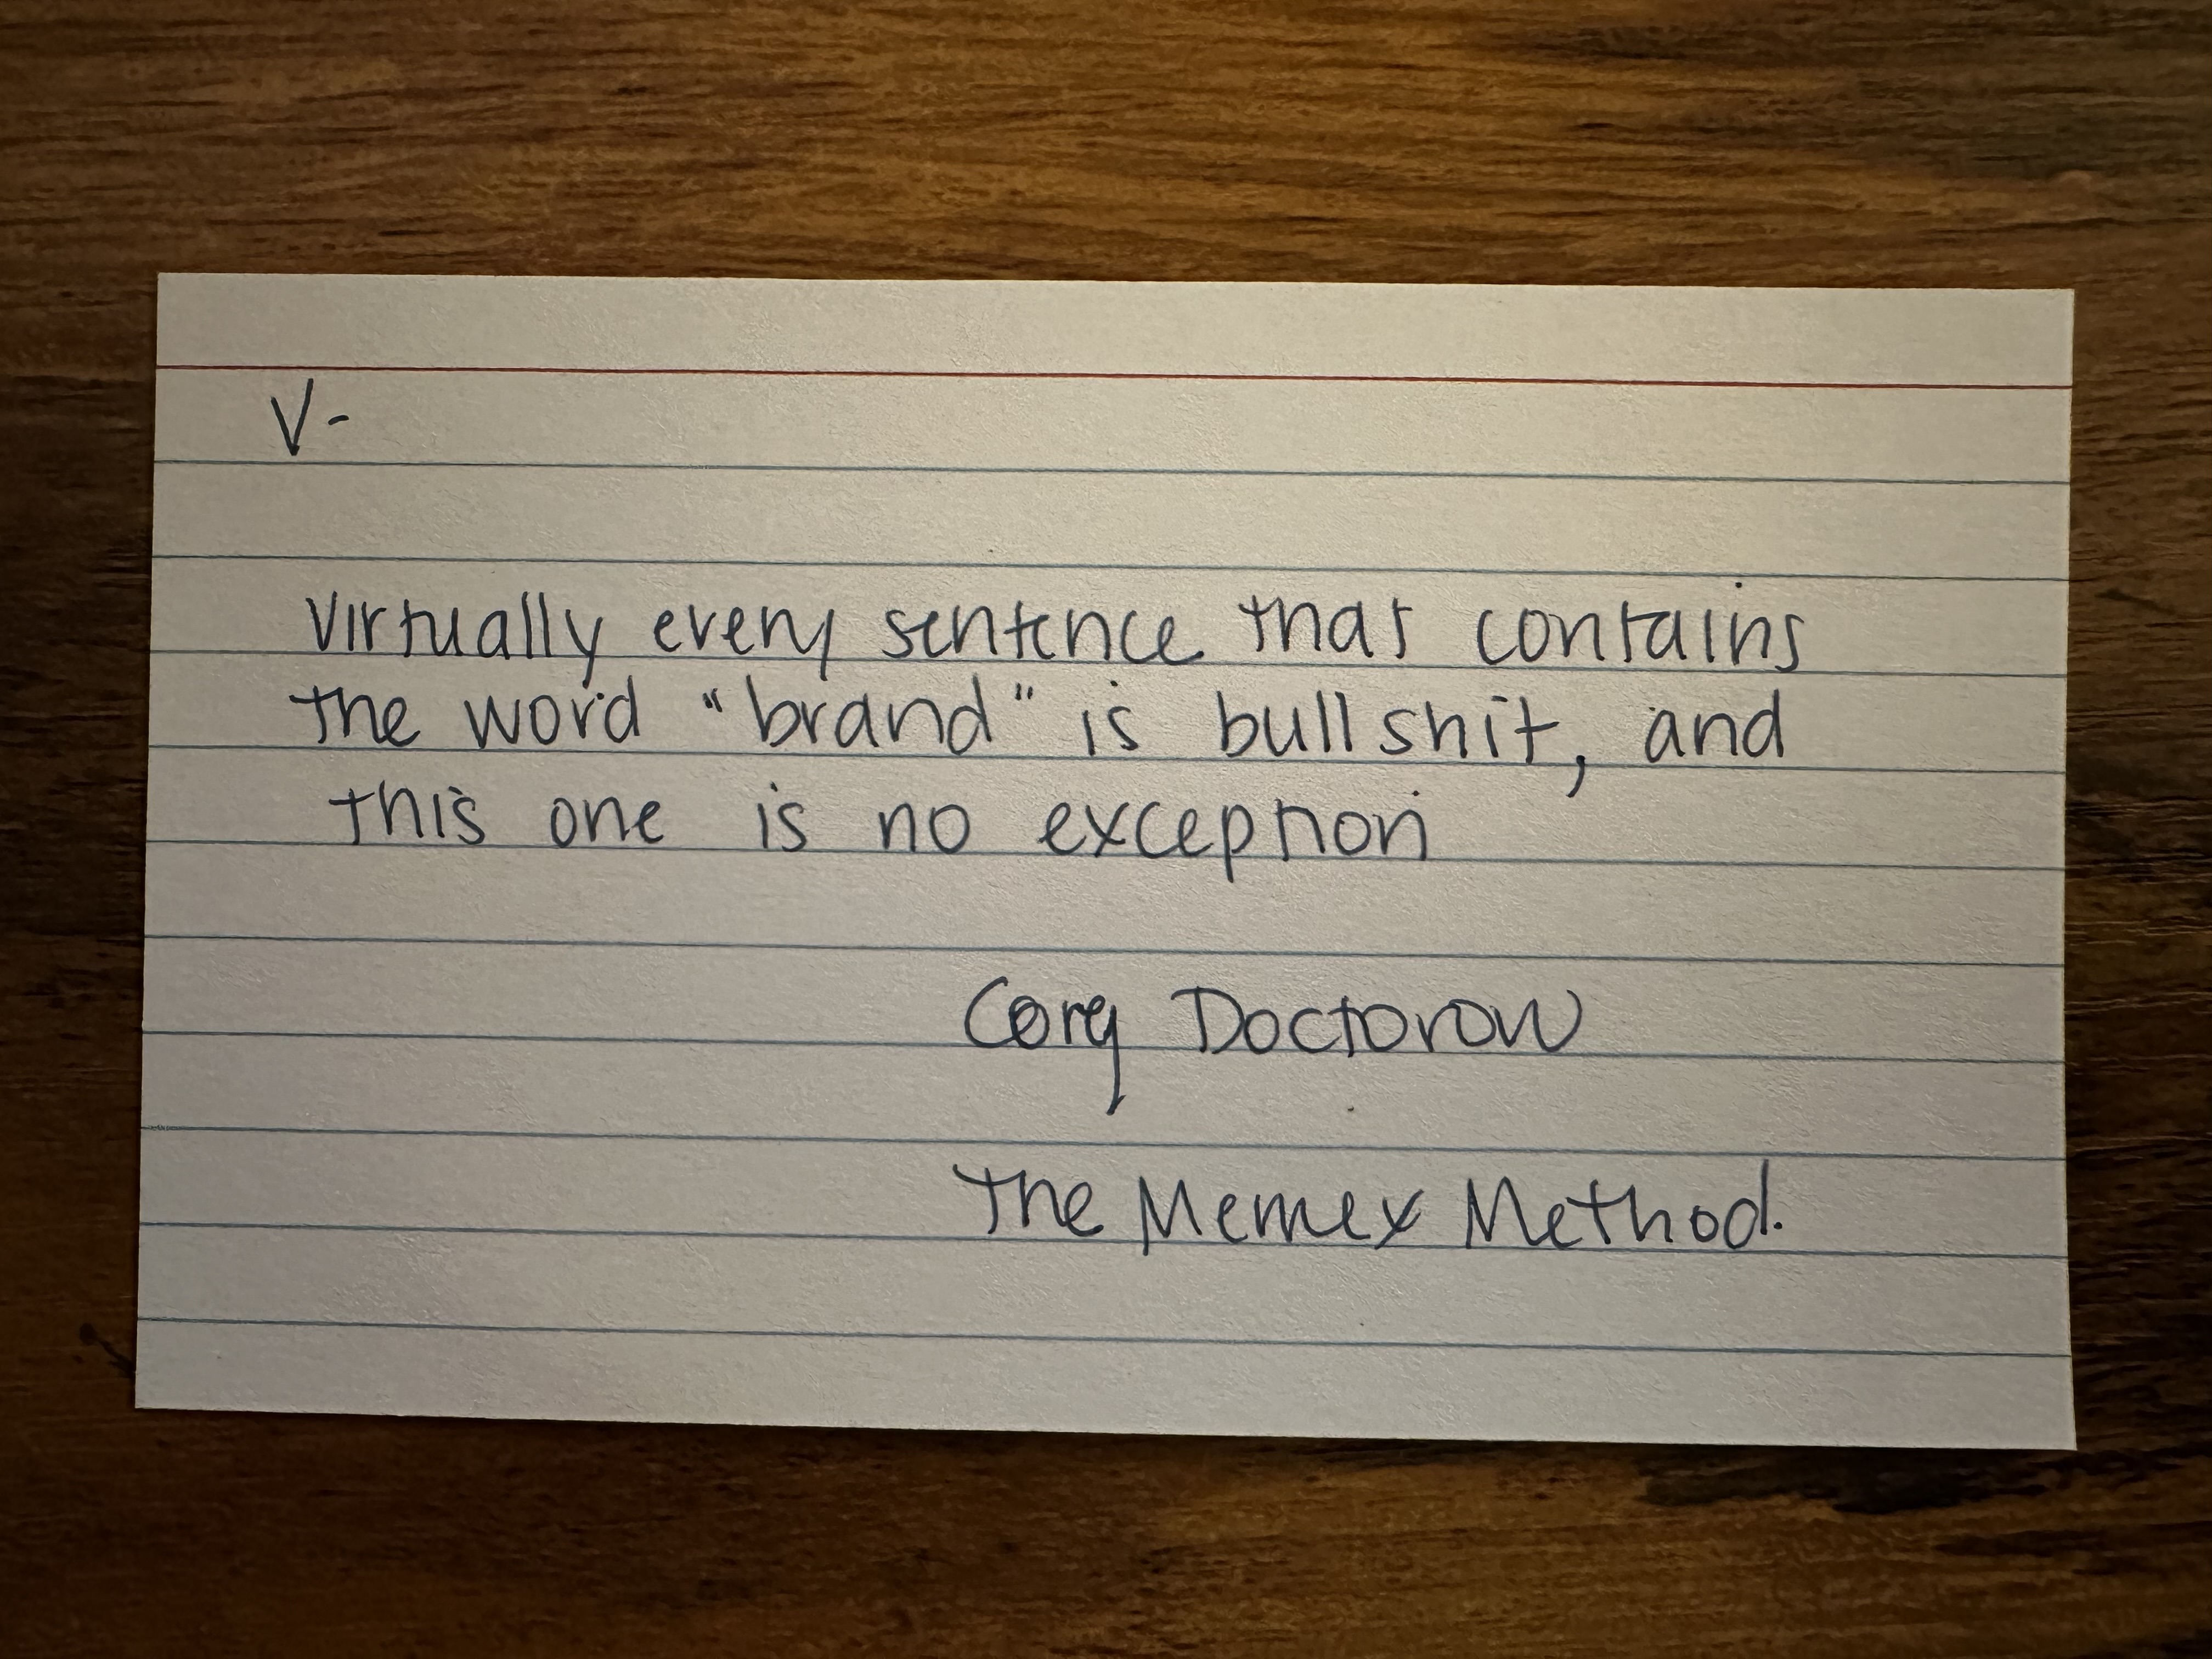 V-
Virtually every sentence that contains
the word "brand" is bullshit, and
this one is no exception
Cory Doctorow
The Memex Method.